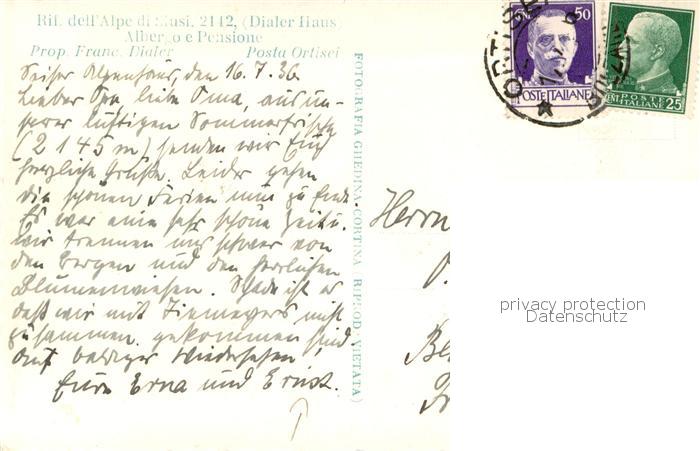 Rif. dell'Alpe di Siusi, 2142, (Dialer Haus)
Albergo e Pensione
Prop. Franc. Dialer Posta Ortisei
Seiser Alpenhaus, den 16.7.36
Lieber Opa, liebe Oma, aus un-
serer luftigen Sommerfrische
(2145 m) senden wir Euch
herzliche Grüße. Leider gehen
die schönen Ferien nun zu Ende.
Es war eine sehr schöne Zeit u.
wir trennen uns schwer von
den Bergen und den herrlichen
Blumenwiesen. Schade ist es
daß wir mit nicht
zusammen gekommen sind
Auf baldiges Wiedersehen!
Eure Erna und Ernst.
FOTOGRAFIA GHEDINA-CORTINA (RIPROD. VIETATA)
ORTISEI
50
POSTE ITALIANE
POSTE
ITALIANE 25
Herrn
privacy protection
Datenschutz